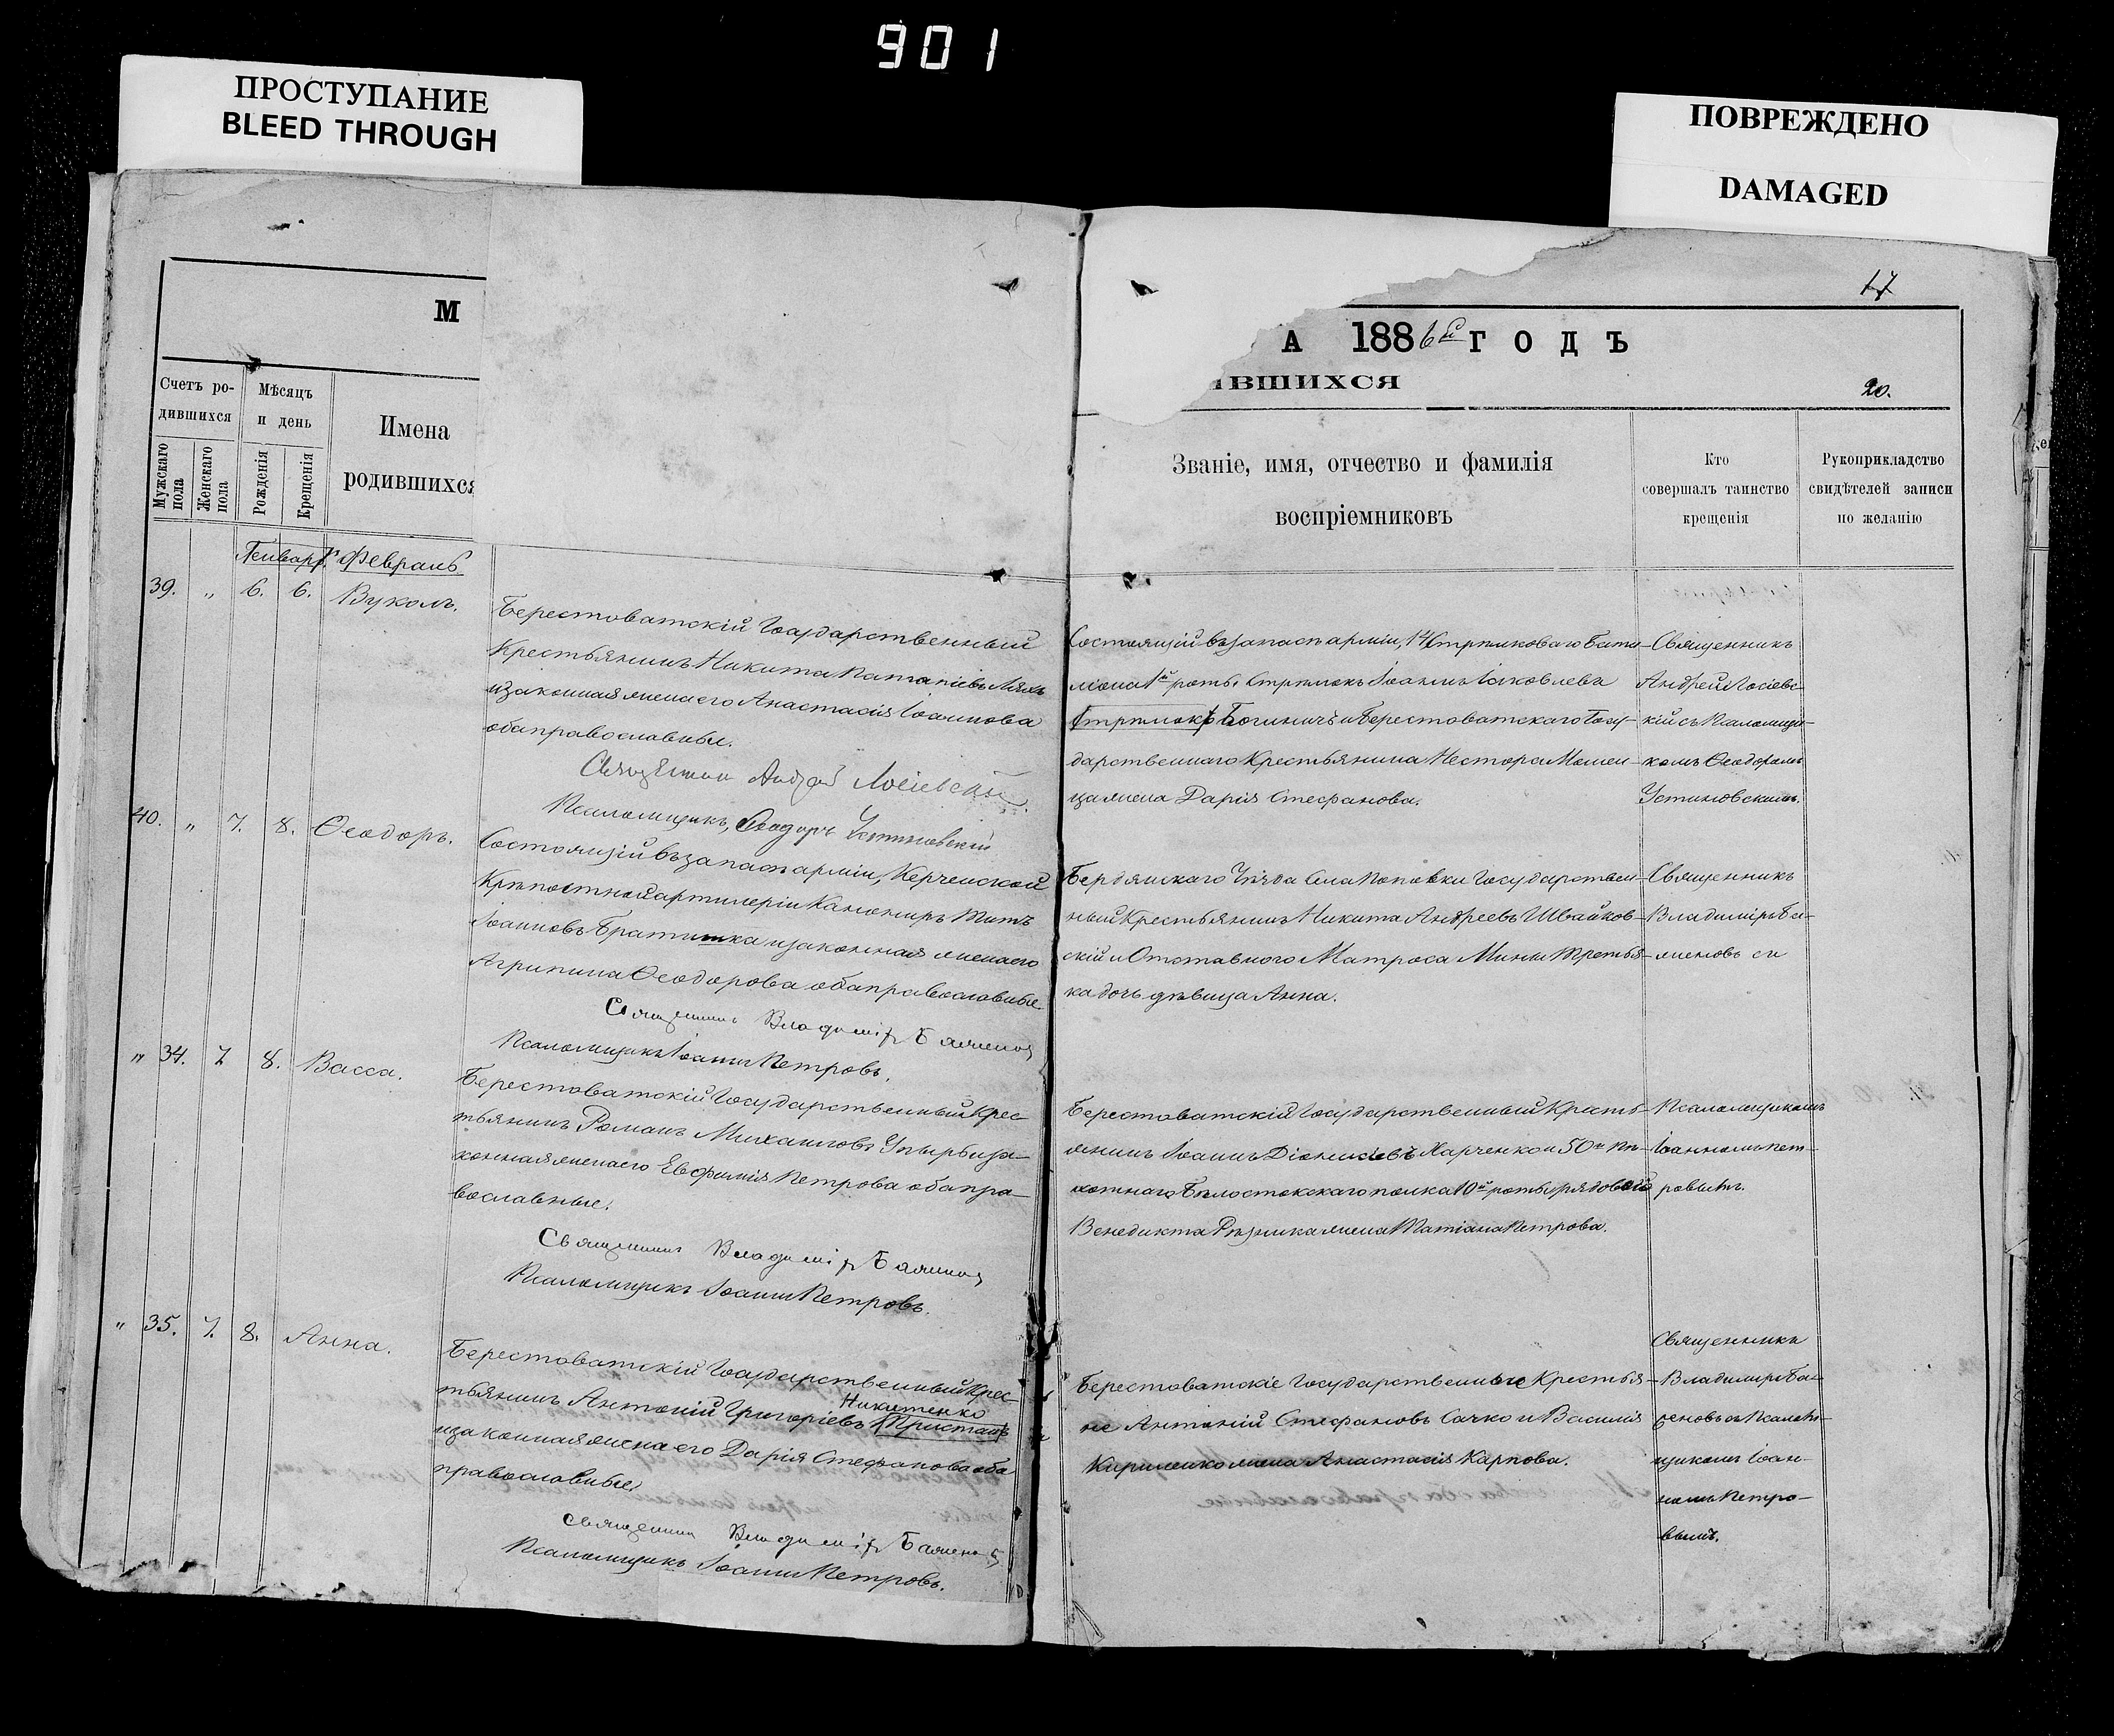 901
ПРОСТУПАНИЕ
BLEED THROUGH
ПОВРЕЖДЕНО
DAMAGED
М
Счетъ ро-
дившихся
Мужскаго пола
Женскаго пола
Мѣсяцъ
и день
Рожденія
Крещенія
Имена
родившихся
17
А 1886й ГОДЪ
ИВШИХСЯ
20.
Званіе, имя, отчество и фамилія
воспріемниковъ
Кто
совершалъ таинство
крещенія
Рукоприкладство
свидѣтелей записи
по желанію
Февраль
39. " 6. 6. Вуколъ.
Берестоватскій Государственный
Крестьянинъ Никита Патапіевъ Ляхъ
и законная жена его Анастасія Іоаннова
оба православные.
Священникъ Андрей Лосіевскій
Псаломщикъ, Ѳеодоръ Устиновскій
Состоящій въ запасѣ арміи, 14 Стрѣлковаго Бата-
ліона 1й роты Стрѣлокъ Іоаннъ Іаковлевъ
(Стрѣлокъ) Богиничъ и Берестоватскаго Госу-
дарственнаго Крестьянина Нестора
жена Дарія Стефанова.
Священникъ
Андрей Лосіевс-
кій съ Псаломщи-
комъ Ѳеодоромъ
Устиновскимъ.
40. " 7. 8. Ѳеодоръ.
Состоящій въ запасѣ арміи, Керченской
Крѣпостной артилеріи Канониръ Титъ
Іоанновъ Братишка и законная жена его
Агрипина Ѳеодорова оба православные
Священникъ Владиміръ Баженов
Псаломщикъ Іоаннъ Петровъ.
Бердянскаго Уѣзда Села Поповки Государствен-
ный Крестьянинъ Никита Андреевъ Швайков-
скій и Отставного Матроса Мины Третья-
ка дочь дѣвица Анна.
Священникъ
Владиміръ Ба-
женовъ съ
" 34. 7 8. Васса.
Берестоватскій Государственный Крес-
тьянинъ Романъ Михаиловъ Упырь и за-
конная жена его Евфимія Петрова оба пра-
вославные.
Священникъ Владиміръ Баженов
Псаломщикъ Іоаннъ Петровъ.
Берестоватскій Государственный Кресть-
янинъ Іоаннъ Діонисіевъ Харченко и 50го Пѣ-
хотнаго Бѣлостокскаго полка 10й роты рядоваго
Венедикта Рѣзника жена Татіана Петрова.
Псаломщикомъ
Іоанномъ Пет-
ровымъ.
" 35. 7. 8. Анна.
Берестоватскій Государственный Крес-
Никитенко
тьянинъ Антоній Григоріевъ
и законная жена его Дарія Стефанова оба
православные
Священник Владиміръ Баженов
Псаломщикъ Іоаннъ Петровъ.
Берестоватскіе Государственные Крестья-
не Антоній Стефановъ Сачко и Василія
Кириленко жена Анастасія Карпова.
Священникъ
Владиміръ Ба-
женовъ съ Псалом-
щикомъ Іоан-
номъ Петро-
вымъ.